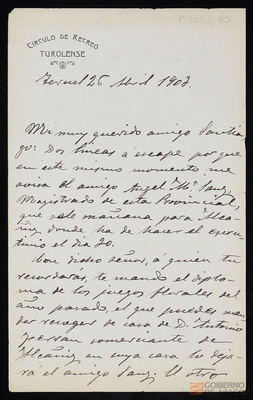 CÍRCULO DE RECREO
TUROLENSE
Teruel 26 Abril 1903.
Mi muy querido amigo Santia-
go: Dos lineas á escape porque
en este mismo momento me
avisa el amigo Angel Mª Sanz,
Magistrado de esta Provincial,
que sale mañana para Alca-
ñiz, donde ha de hacer el escru-
tinio el dia 30.
Con dicho Señor, á quien tu
recordarás, te mando el diplo-
ma de los juegos florales del
año pasado, el que puedes man-
dar recoger de casa de D. Antonio
comerciante de
Alcañiz en cuya casa lo deja-
rá el amigo Sanz. El otro
GOBIERNO
DE ARAGON